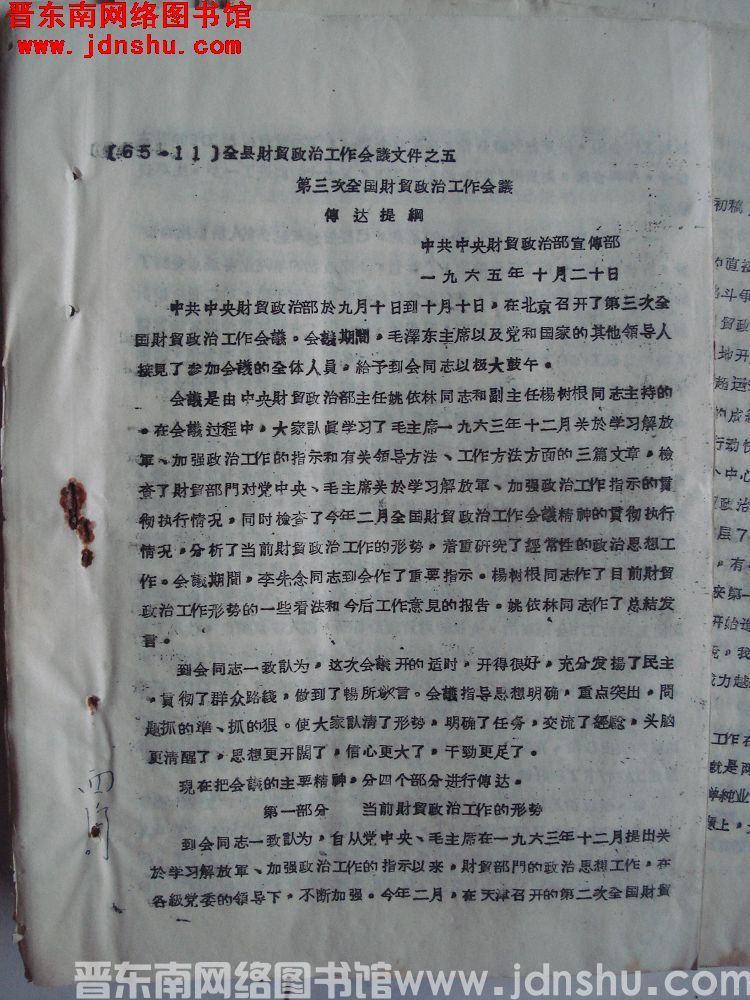 晋东南网络图书馆
www.jdnshu.com
〔65-11〕全县財貿政治工作会議文件之五
第三次全国財貿政治工作会議
傳达提綱
中共中央財貿政治部宣傳部
一九六五年十月二十日
中共中央財貿政治部於九月十日到十月十日，在北京召开了第三次全
国財貿政治工作会議。会議期間，毛澤东主席以及党和国家的其他領导人
接見了参加会議的全体人員，給予到会同志以极大鼓午。
会議是由中央財貿政治部主任姚依林同志和副主任楊树根同志主持的
。在会議过程中，大家認眞学习了毛主席一九六三年十二月关於学习解放
軍、加强政治工作的指示和有关領导方法、工作方法方面的三篇文章，檢
查了財貿部門对党中央、毛主席关於学习解放軍、加强政治工作指示的貫
彻执行情况，同时檢查了今年二月全国財貿政治工作会議精神的貫彻执行
情况，分析了当前財貿政治工作的形势，着重研究了經常性的政治思想工
作。会議期間，李先念同志到会作了重要指示。楊树根同志作了目前財貿
政治工作形势的一些看法和今后工作意見的报告。姚依林同志作了总結发
言。
到会同志一致認为，这次会議开的适时，开得很好，充分发揚了民主
，貫彻了群众路綫，做到了暢所欲言。会議指导思想明确，重点突出，問
題抓的準、抓的狠。使大家認清了形势，明确了任务，交流了經驗，头脑
更清醒了，思想更开闊了，信心更大了，干劲更足了。
現在把会議的主要精神，分四个部分进行傳达。
第一部分 当前財貿政治工作的形势
到会同志一致認为，自从党中央、毛主席在一九六三年十二月提出关
於学习解放軍、加强政治工作的指示以来，財貿部門的政治思想工作，在
各級党委的領导下，不断加强。今年二月，在天津召开的第二次全国財貿
初稿
斗争
貿政
地开
超运
的成
行动
中心
政治
层了
，有
第一
开始
，我
力越
工作在
就是两
单純业
上，
晋东南网络图书馆www.jdnshu.com